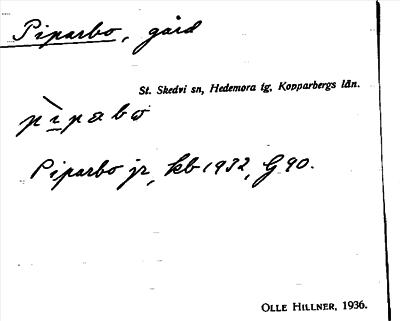 Piparbo, gård
St. Skedvi sn, Hedemora tg, Kopparbergs län.
pìpabo
Piparbo jr, kb 1932, G 90.
OLLE HILLNER, 1936.